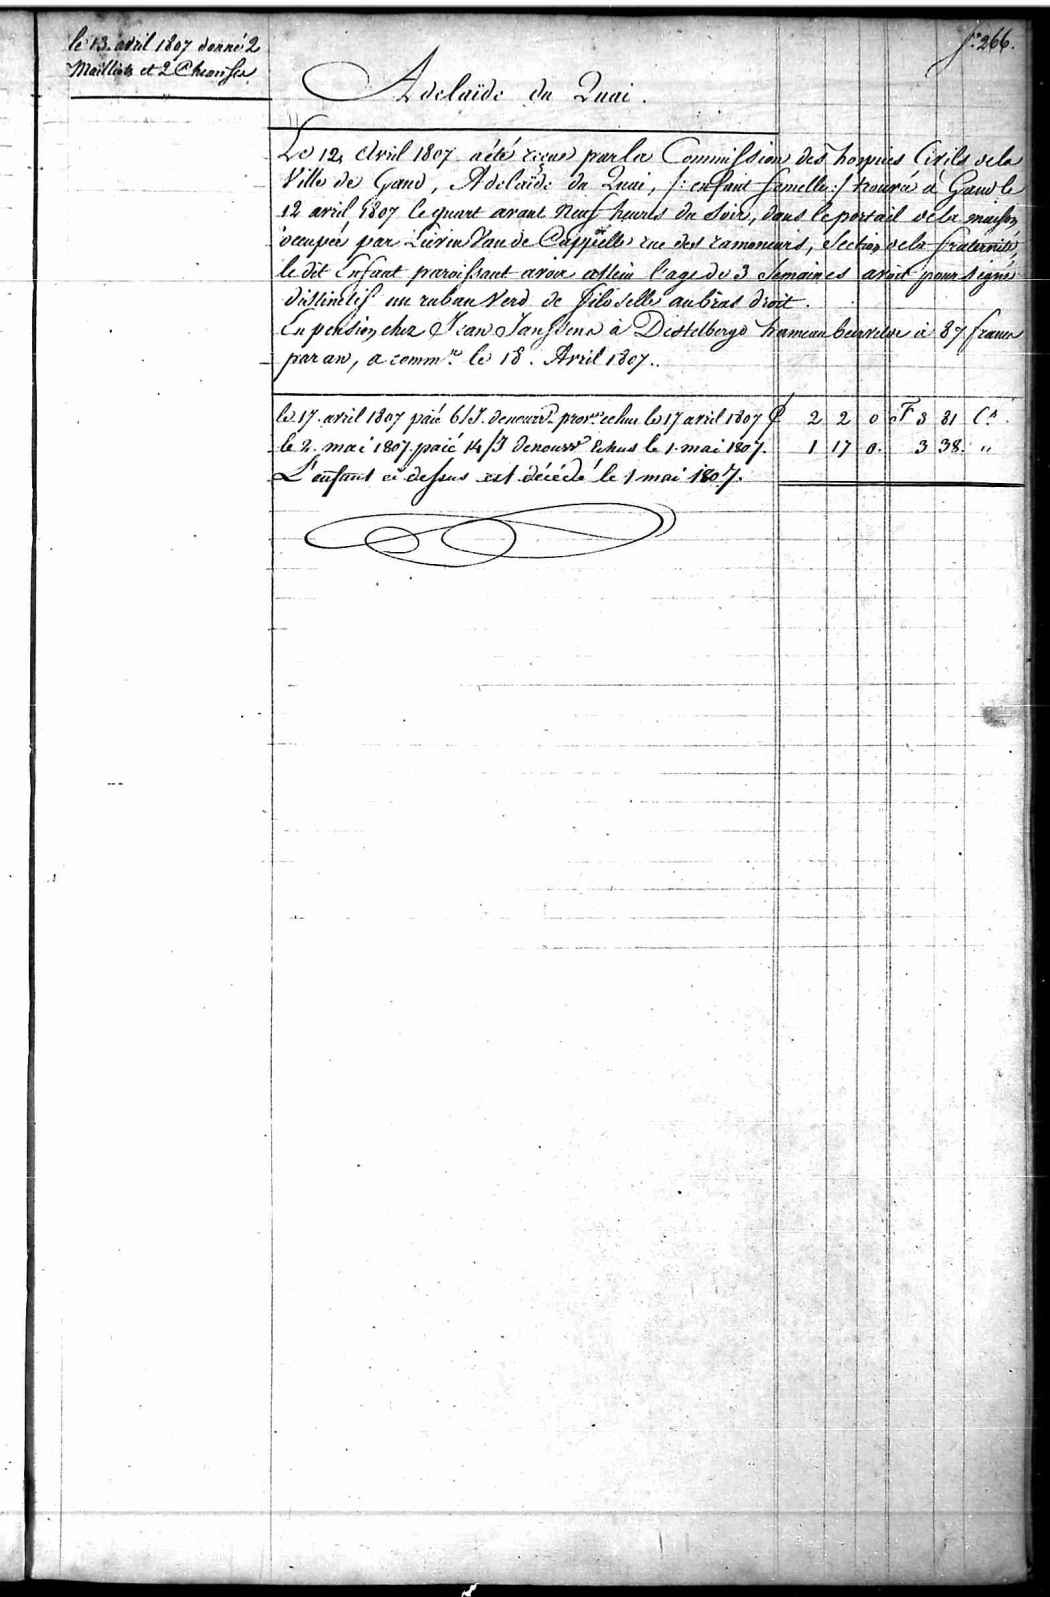 f.° 266.
le 13 avril 1807 donné 2
Maillots et 2 Chemises
Adelaïde du Quai.
Le 12 Avril 1807 a été reçue par la Commission des hospices Civils de la
Ville de Gand, Adelaïde du Quai, /: enfant femelle :/ trouvée à Gand le
12 avril 1807 le quart avant Neuf heures du Soir, dans le portail de la maison
occupée par Lievin Van de Cappelle rue des ramoneurs, Section de la fraternité,
le dit Enfant paroissant avoir atteint l'age de 3 Semaines avoit pour Signe
distinctif un ruban Verd de filoselle au bras droit.
En pension chez Jean Janssens à Destelberge hameau beirvelde à 87 francs
par an, a comm.ce le 18. Avril 1807.
le 17. avril 1807 paié 6/J. de nourr.e prov.re echus le 17 avril 1807 £ 2 2 0 F 3 81 C.s
le 2. mai 1807. paié 14/J de nourr.e Echus le 1. mai 1807. 1 17 0. 3 38. "
L'enfant ci dessus est décédé le 1 mai 1807.